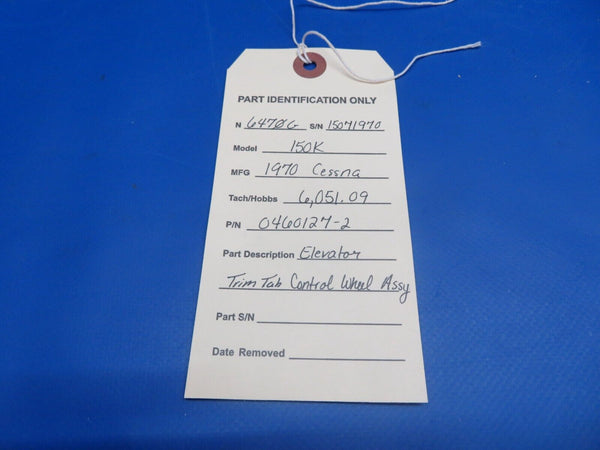 PART IDENTIFICATION ONLY
N 6470G S/N 15071970
Model 150K
MFG 1970 Cessna
Tach/Hobbs 6,051.09
P/N 0460127-2
Part Description Elevator
Trim Tab Control Wheel Assy
Part S/N
Date Removed